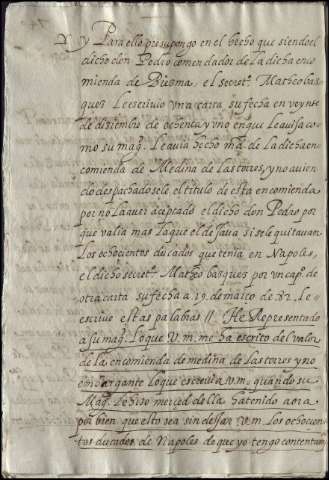 y Para ello presupongo en el hecho que siendo el
dicho don Pedro comendador de la dicha enco
mienda de Biesma, el secretº Matheo bas
quez le escriuio vna carta su fecha en veynte
de diziembre de ochenta y vno en que le auisa co
mo su magᵈ. le auia hecho mrᵈ. de la dicha en
comienda de Medina de las torres, y no auien
do despachadosele el titulo de esta encomienda
por no la auer aceptado el dicho don Pedro por
que valia mas la que el dexaua si se le quitauan
los ochocientos ducados que tenia en Napoles,
el dicho secretº Matheo basques por vn capº. de
otra carta su fecha a 19. de março de 82. Le
escriue estas palabras // He Representado
a su magᵈ. lo que V.m. me ha escrito del valor
de la encomienda de medina de las torres y no
embargante lo que escreuia v.m. quando su
Magᵈ. le hizo merced della ha tenido aora
por bien que esto sea sin dessar V.m. los ochocien
tos ducados de Napoles de que yo tengo contentamᵒ